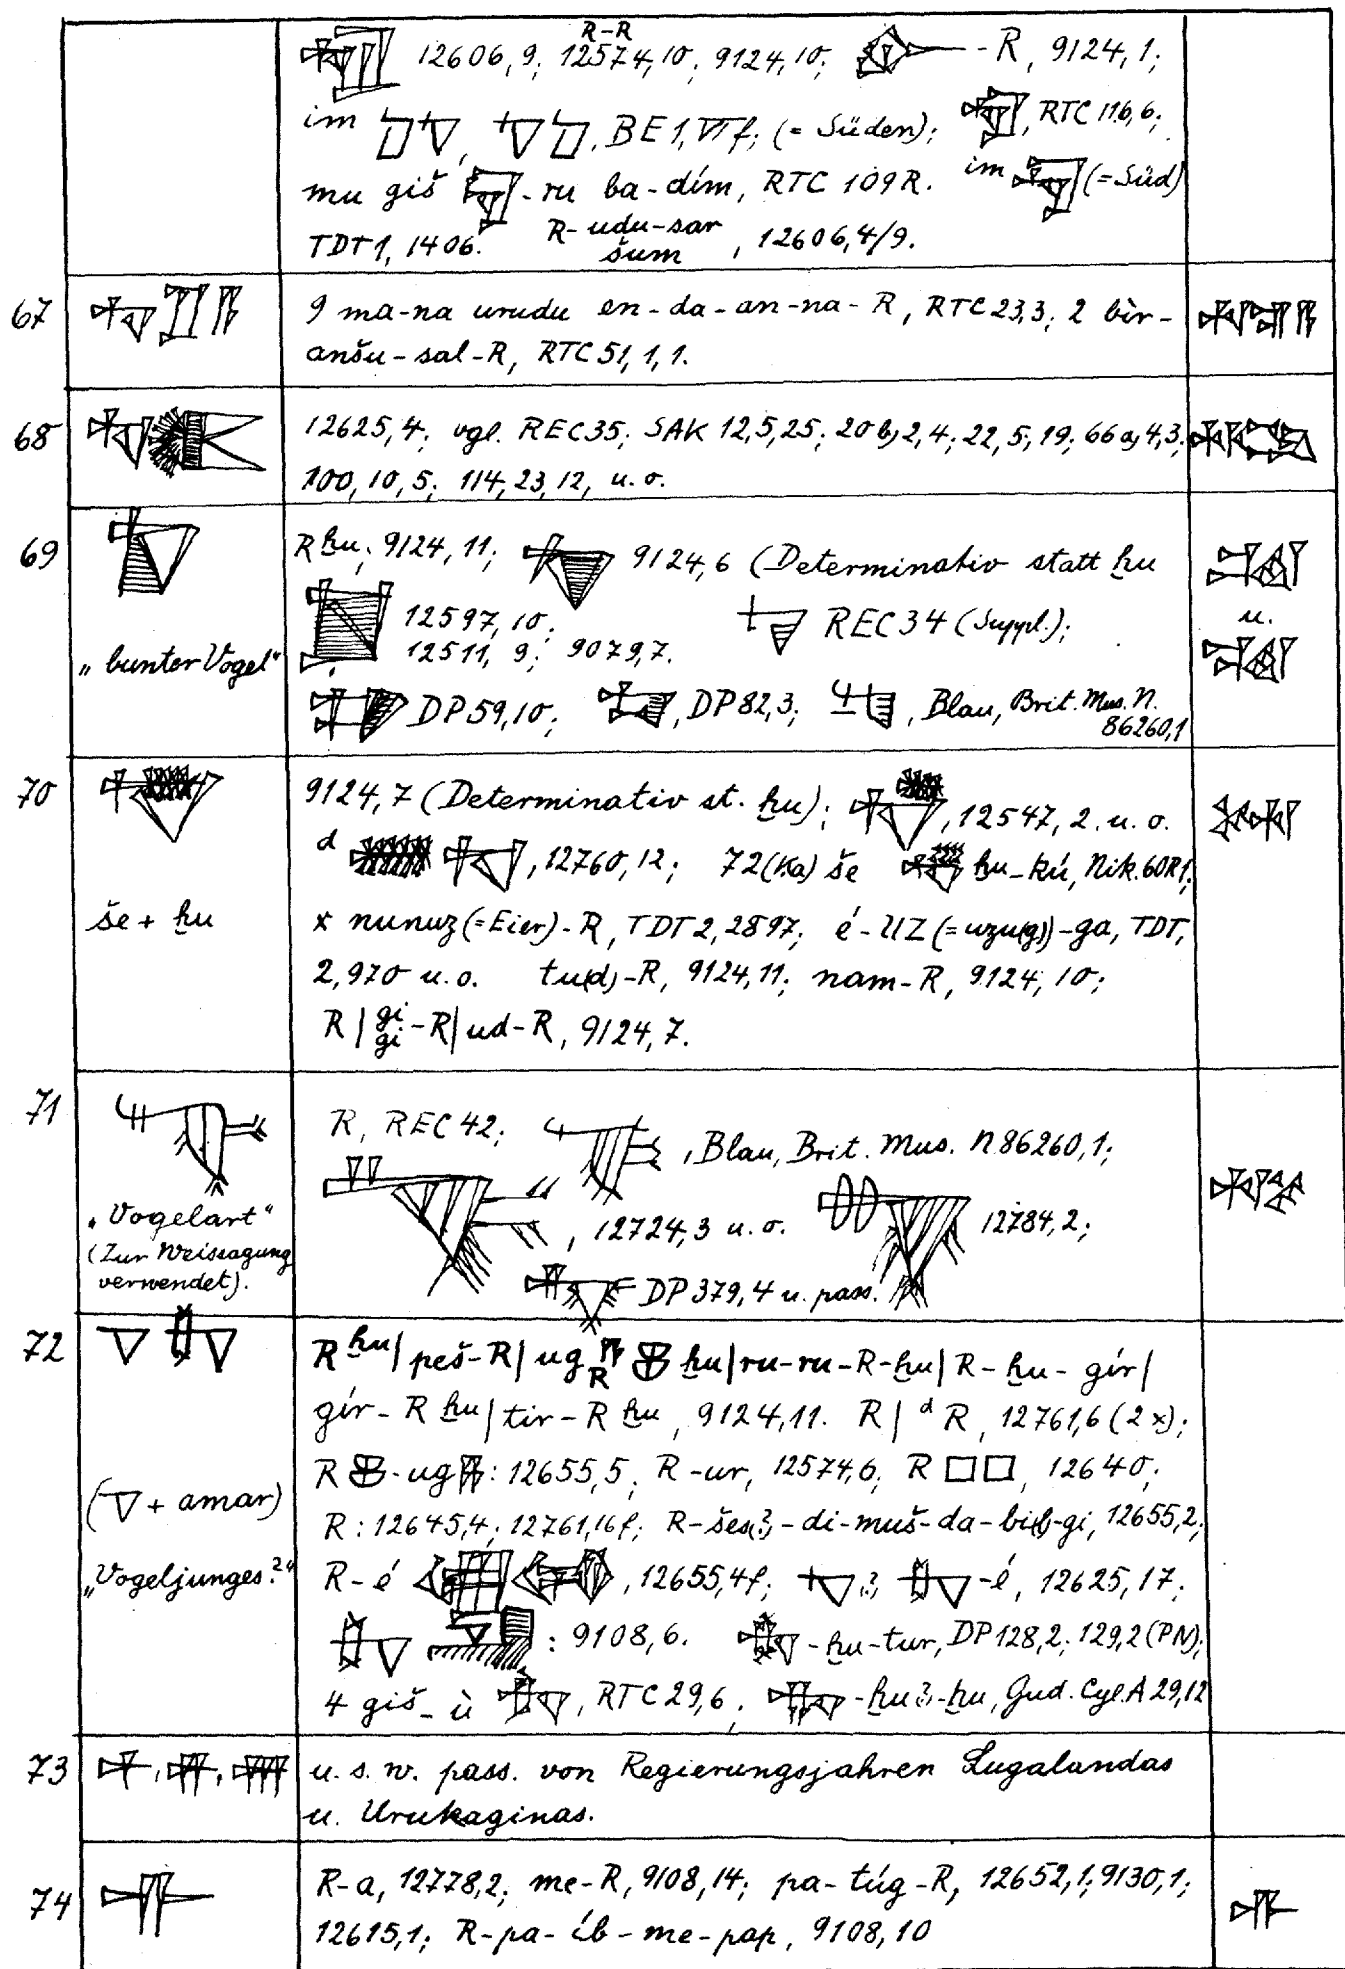 R-R
12606, 9; 12574, 10; 9124, 10; -R, 9124, 1;
im , BE 1, VI f; (= Süden); , RTC 116, 6;
mu giš -ru ba-dím, RTC 109 R. im (= Süd)
TDT 1, 1406. R-udu-sar šum , 12606, 4/9.
67 9 ma-na urudu en-da-an-na-R, RTC 23,3; 2 bìr-
anšu-sal-R, RTC 51, 1, 1.
68 12625, 4; vgl. REC 35; SAK 12, 5, 25; 20 b, 2, 4; 22, 5, 19; 66 a, 4, 3;
100, 10, 5; 114, 23, 12, u. o.
69 R ḫu, 9124, 11; 9124, 6 (Determinativ statt ḫu
12597, 10; REC 34 (Suppl.); u.
„bunter Vogel“ 12511, 9; 9079, 7.
DP 59, 10; , DP 82, 3; , Blau, Brit. Mus. N.
86260,1
70 9124, 7 (Determinativ st. ḫu); , 12547, 2. u. o.
d , 12760, 12; 72 (Ka) še ḫu-kú, Nik. 60 R 1;
še + ḫu x nunuz (= Eier)-R, TDT 2, 2897; é-UZ (= uzu(g))-ga, TDT,
2, 970 u. o. tu(d)-R, 9124, 11; nam-R, 9124, 10;
R | gi gi -R | ud-R, 9124, 7.
71 R, REC 42; , Blau, Brit. Mus. N 86260, 1;
„Vogelart“ , 12724, 3 u. o. 12784, 2;
(Zur Weissagung
verwendet). DP 379, 4 u. pass.
72 R ḫu | peš-R | ug R ḫu | ru-ru-R-ḫu | R-ḫu-gír |
gír-R ḫu | tir-R ḫu, 9124, 11. R | d R, 12761, 6 (2 x);
R -ug : 12655, 5, R-ur, 12574, 6, R , 12640;
( + amar) R : 12645, 4; 12761, 16 f; R-šeš(?)-di-muš-da- -gi, 12655, 2;
„Vogeljunges?“ R-é , 12655, 4 f; ?, -é, 12625, 17;
: 9108, 6. -ḫu-tur, DP 128, 2; 129, 2 (PN);
4 giš-ù , RTC 29, 6; -ḫu?-ḫu, Gud. Cyl. A 29, 12
73 u. s. w. pass. von Regierungsjahren Lugalandas
u. Urukaginas.
74 R-a, 12778, 2; me-R, 9108, 14; pa-túg-R, 12652, 1; 9130, 1;
12615, 1; R-pa-íb-me-pap, 9108, 10